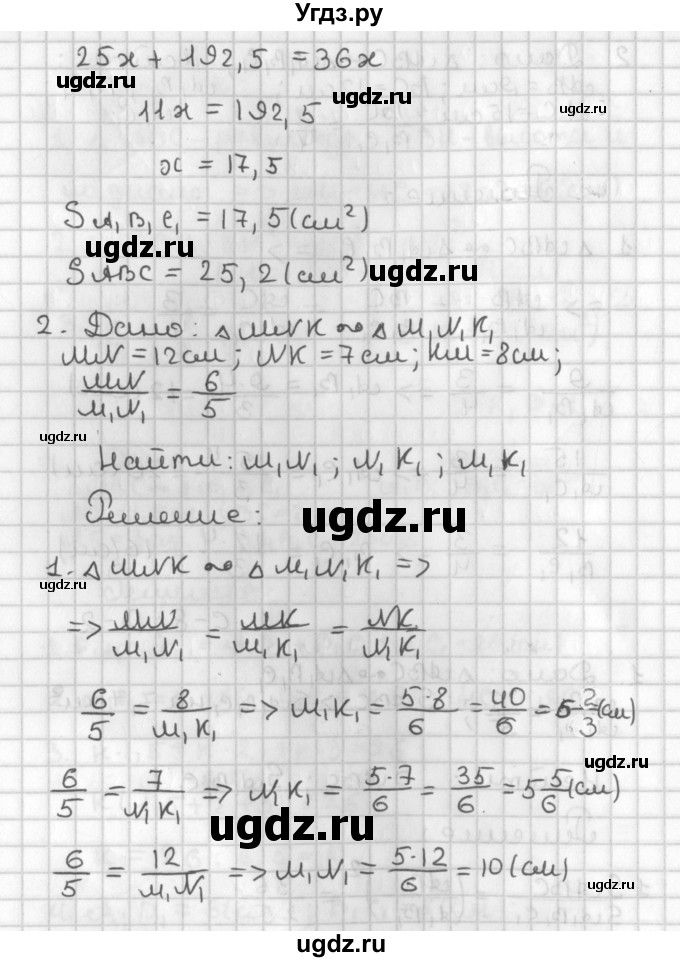 Угдз.ру
25x + 192,5 = 36x
ugdz.ru ugdz.ru ugdz.ru
11x = 192,5
x = 17,5
S A₁B₁C₁ = 17,5 (см²)
ugdz.ru ugdz.ru
S ABC = 25,2 (см²)
2. Дано: △ MNK ∾ △ M₁N₁K₁
MN = 12 см; NK = 7 см; KM = 8 см;
MN/M₁N₁ = 6/5
ugdz.ru
Найти: M₁N₁; N₁K₁; M₁K₁
Решение:
ugdz.ru
1. △ MNK ∾ △ M₁N₁K₁ =>
ugdz.ru
=> MN/M₁N₁ = MK/M₁K₁ = NK/N₁K₁
6/5 = 8/M₁K₁ => M₁K₁ = 5·8/6 = 40/6 = 6 2/3 (см)
ugdz.ru
6/5 = 7/N₁K₁ => N₁K₁ = 5·7/6 = 35/6 = 5 5/6 (см)
ugdz.ru
6/5 = 12/M₁N₁ => M₁N₁ = 5·12/6 = 10 (см)
ugdz.ru
ugdz.ru